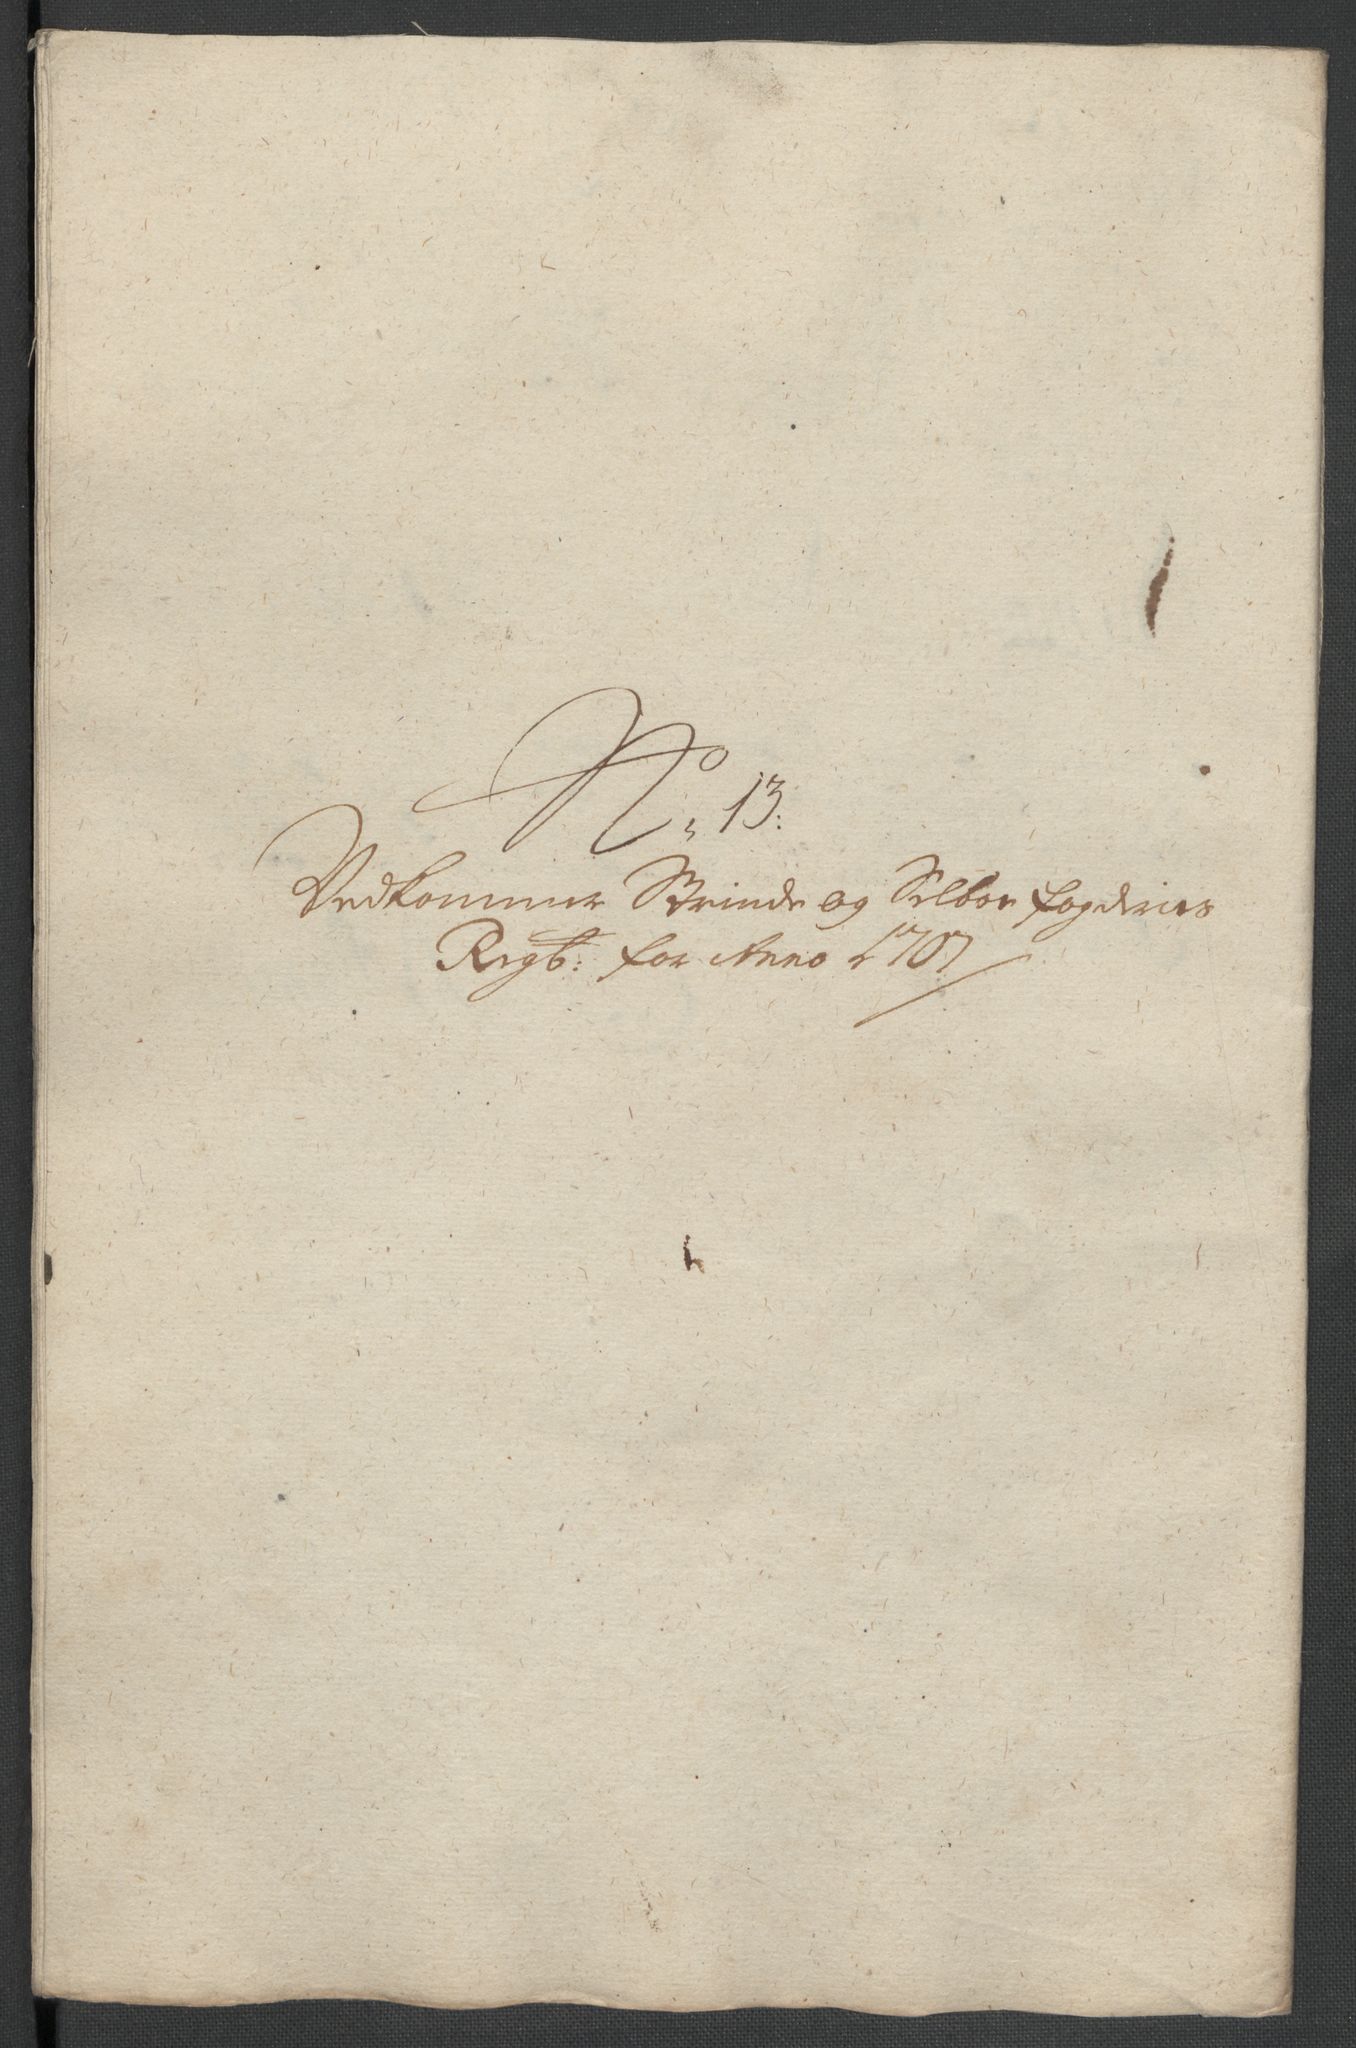 No, 13.
Vedkommer Strinde og Selboe fogderies
Regb: for Anno 1707